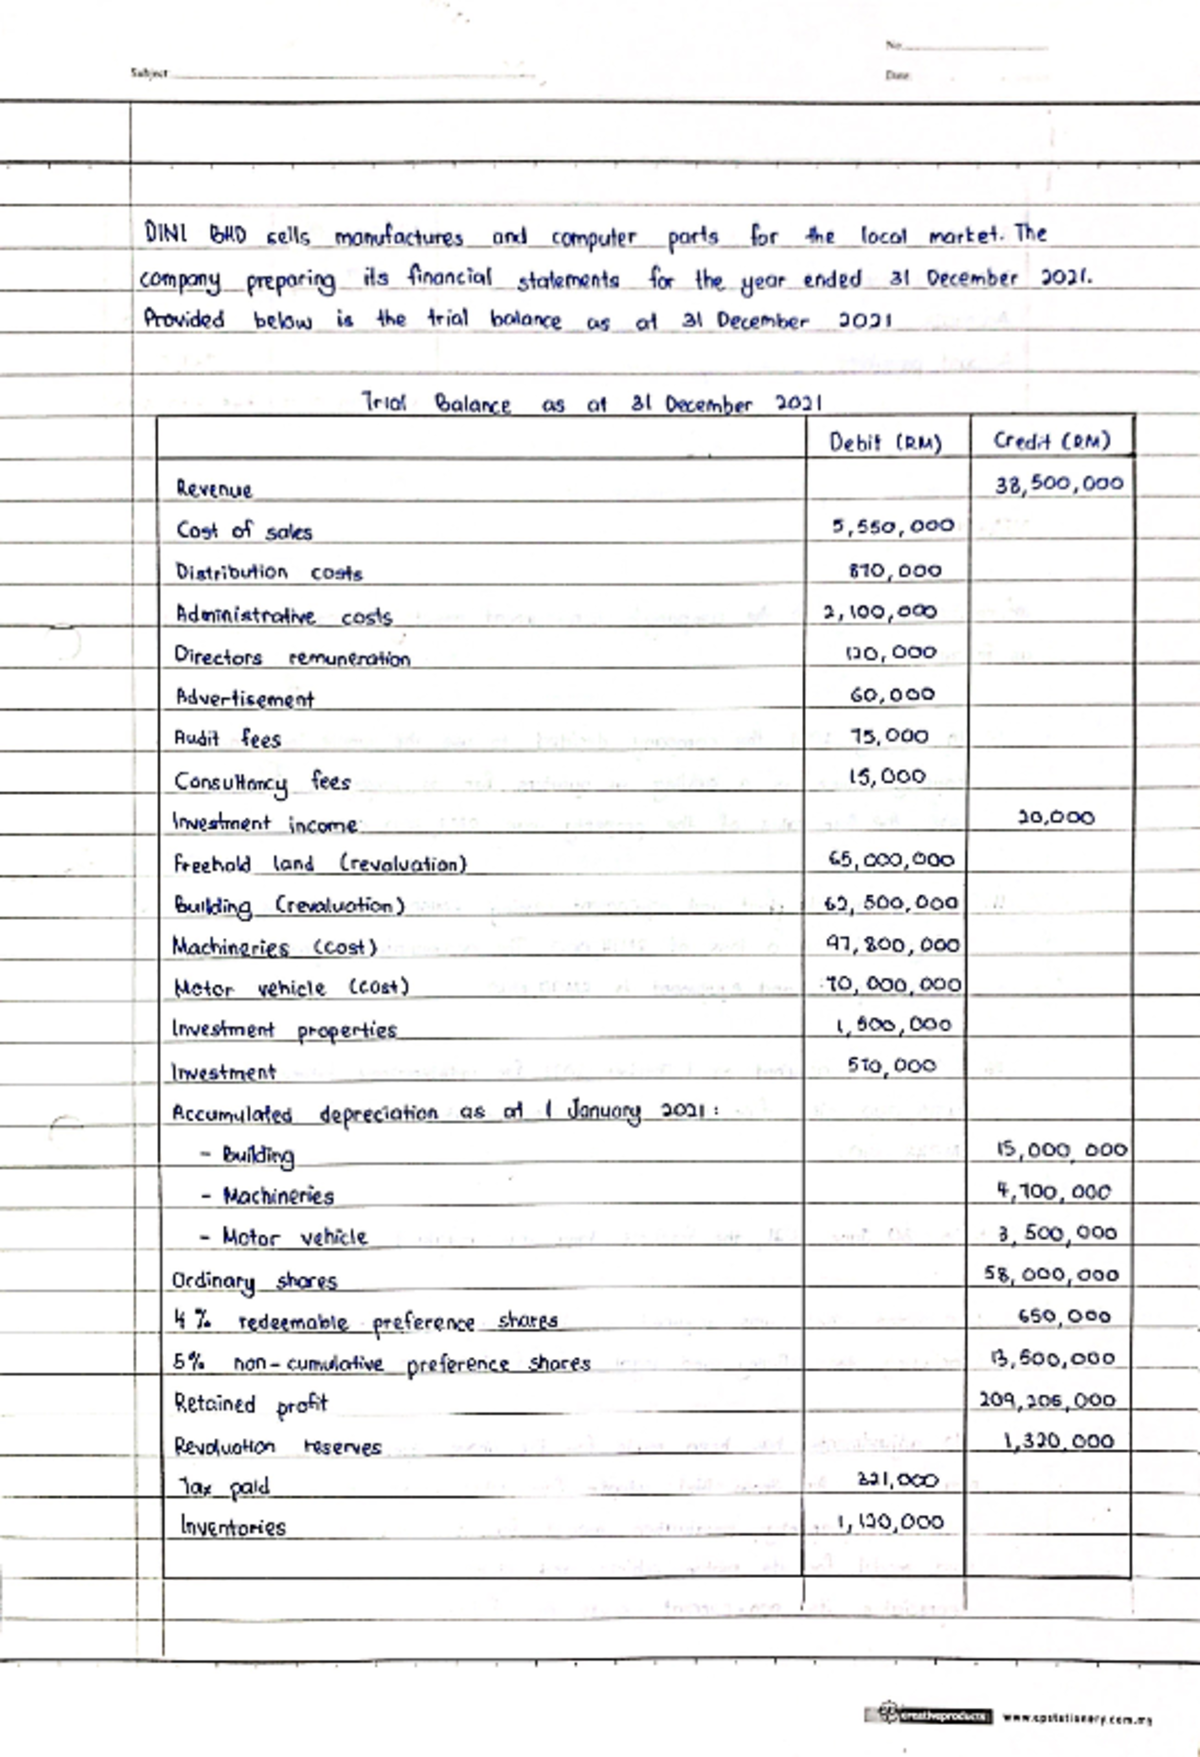 No.
Subject
Date
DINI BHD sells manufactures and computer parts for the local market. The
company preparing its financial statements for the year ended 31 December 2021.
Provided below is the trial balance as at 31 December 2021
Trial Balance as at 31 December 2021
Debit (RM) Credit (RM)
Revenue 38,500,000
Cost of sales 5,550,000
Distribution costs 870,000
Administrative costs 2,100,000
Directors remuneration 120,000
Advertisement 60,000
Audit fees 75,000
Consultancy fees 15,000
Investment income 20,000
Freehold land (revaluation) 65,000,000
Building (revaluation) 62,500,000
Machineries (cost) 97,800,000
Motor vehicle (cost) 70,000,000
Investment properties 1,500,000
Investment 570,000
Accumulated depreciation as at 1 January 2021:
- Building 15,000,000
- Machineries 4,700,000
- Motor vehicle 3,500,000
Ordinary shares 58,000,000
4% redeemable preference shares 650,000
5% non-cumulative preference shares 13,500,000
Retained profit 209,206,000
Revaluation reserves 1,320,000
Tax paid 321,000
Inventories 1,120,000
creativeproducts www.cpstationery.com.my